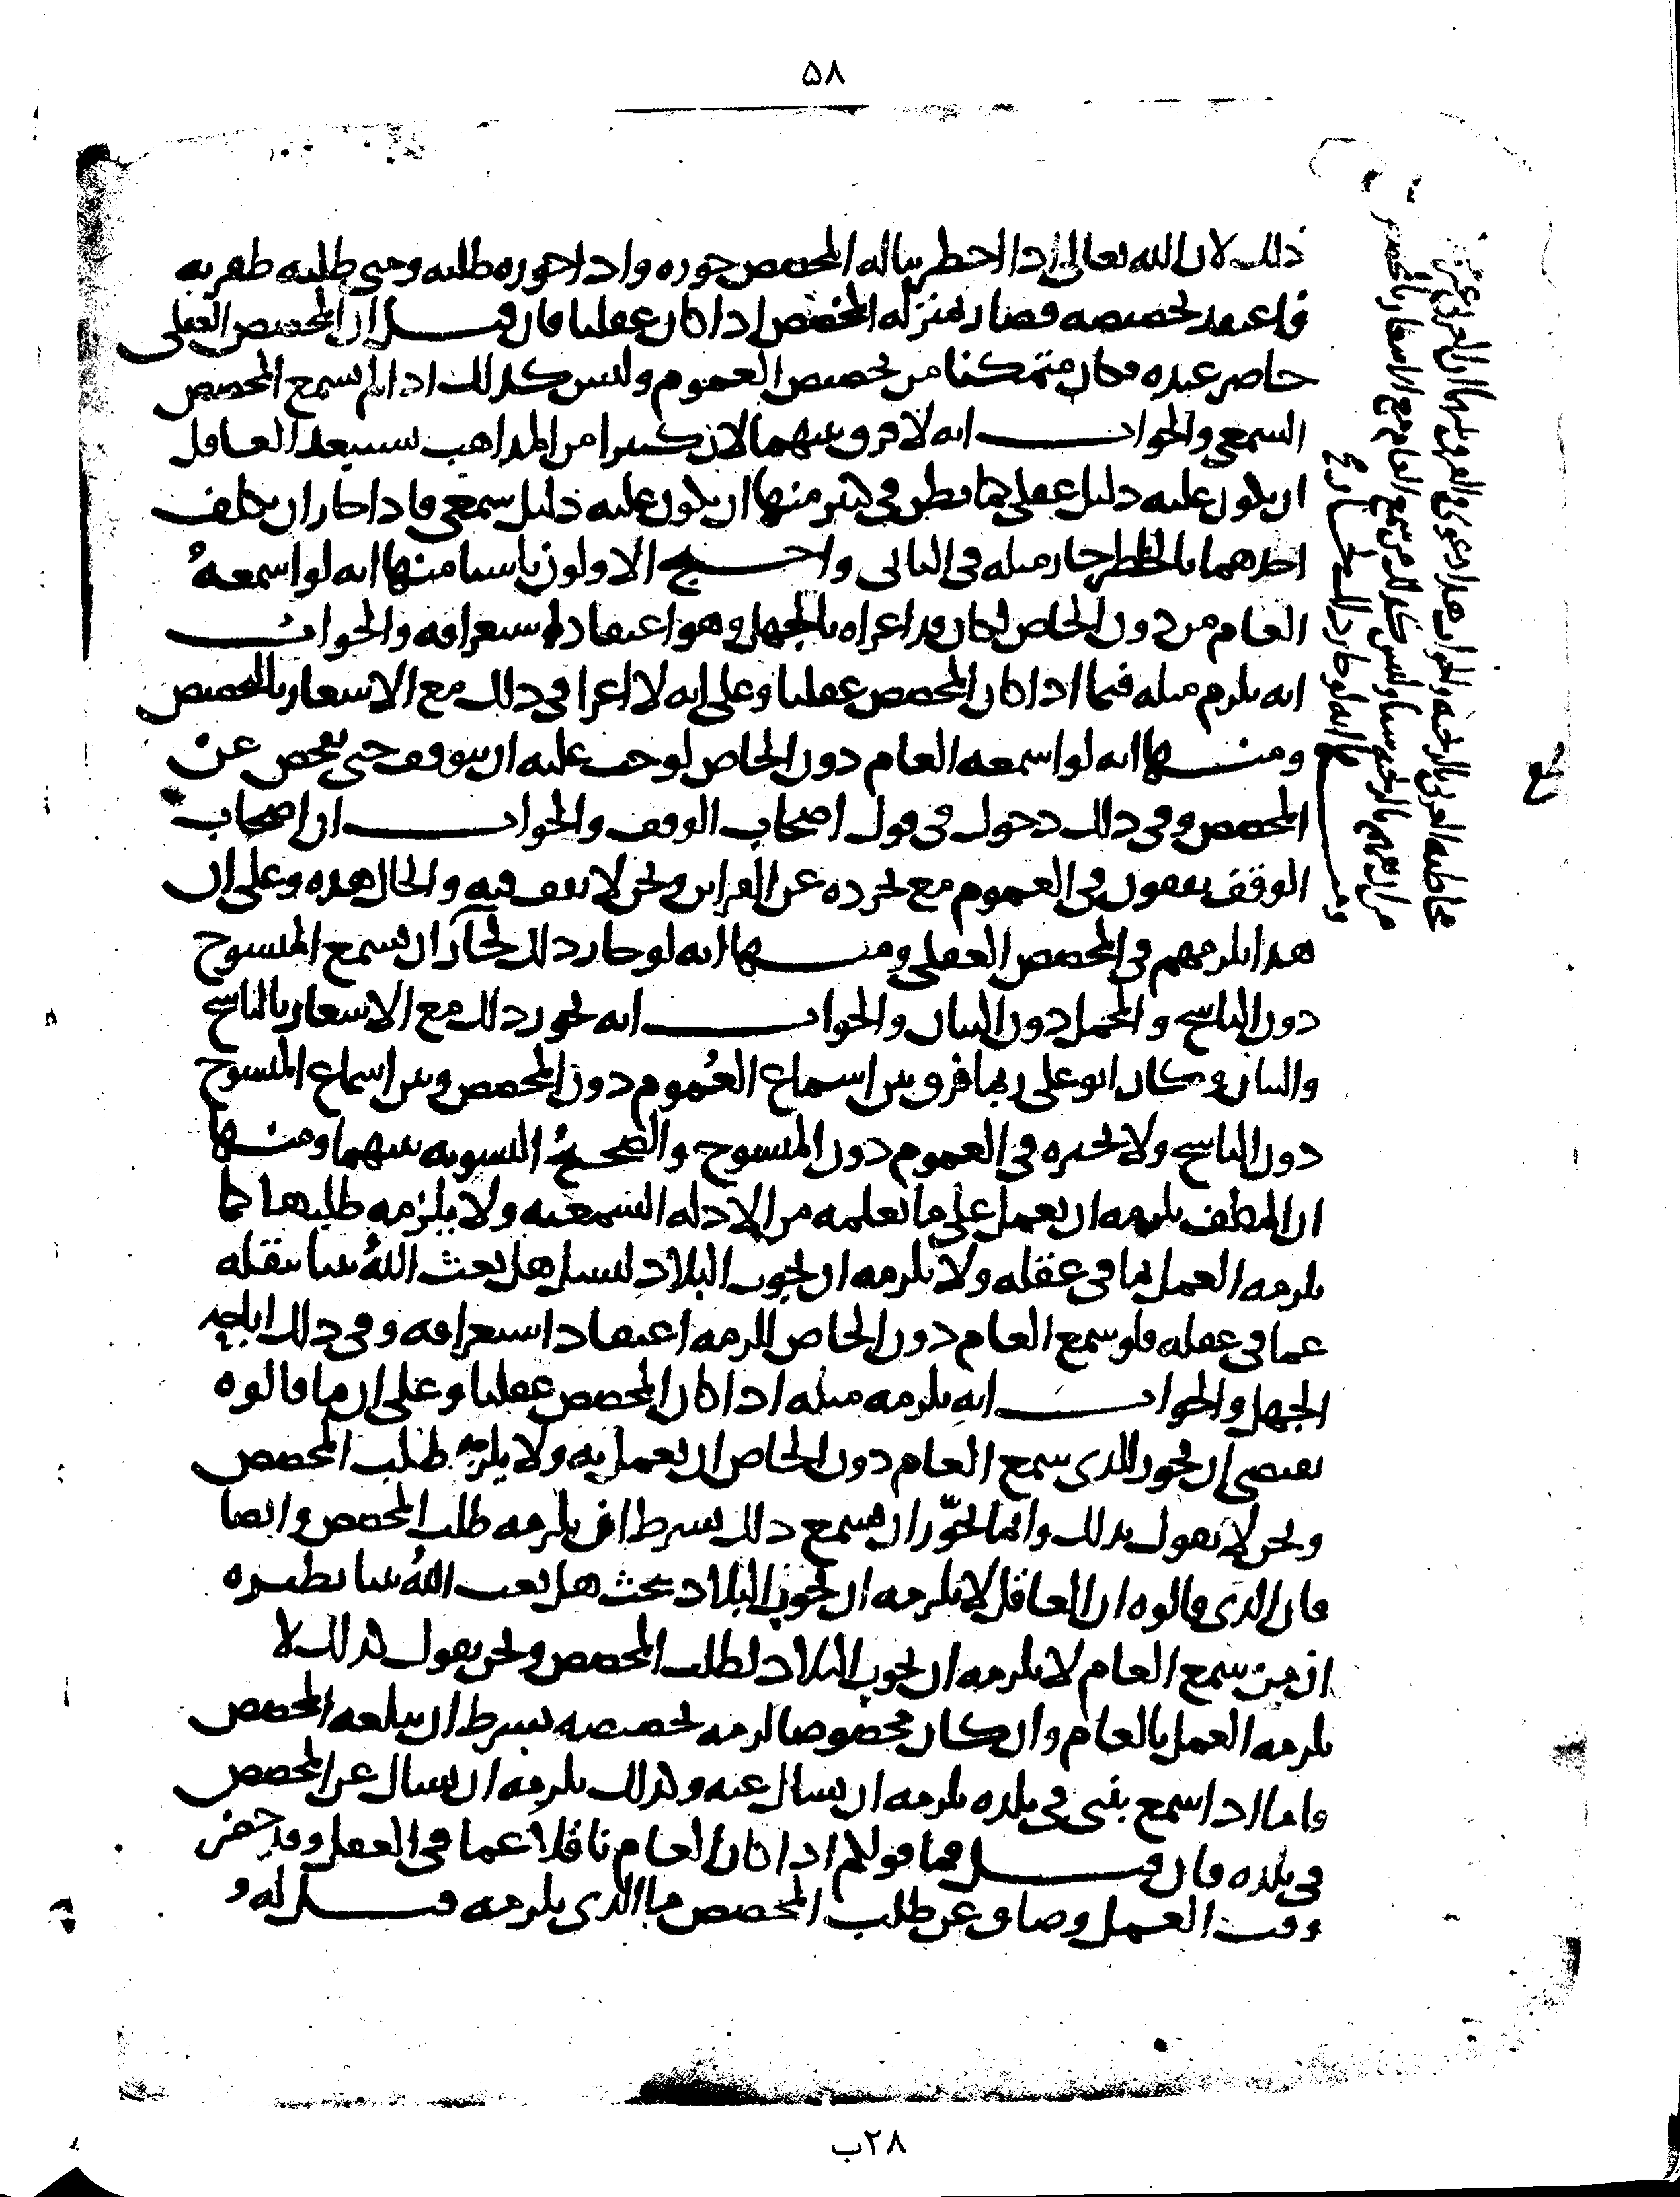 ٥٨
ذلك لان الله تعالى اذا اخطر بباله المخصص جوزه واذا جوزه طلبه ومتى طلبه ظفر به
فاعتقد تخصيصه فصار بمنزلة المخصص اذا كان عقليا فان قيل ان المخصص العقلي
حاضر عنده فكان متمكنا من تخصيص العموم وليس كذلك اذا لم يسمع المخصص
السمعي والجواب انه لا فرق بينهما لان كثيرا من المذاهب يستبعد العاقل
ان يكون عليه دليل عقلي كما يظن في كثير منها ان يكون عليه دليل سمعي فاذا جاز ان يكلف
احدهما بالخاطر جاز مثله في الثاني واحتج الاولون باشيا منها انه لو اسمعه
العام من دون الخاص لكان قد اغراه بالجهل وهو اعتقاد استغراقه والجواب
انه يلزم مثله فيما اذا كان المخصص عقليا وعلى انه لا اغرا في ذلك مع الاشعار بالمخصص
ومنها انه لو اسمعه العام دون الخاص لوجب عليه ان يتوقف حتى يفحص عن
المخصص وفي ذلك دخول في قول اصحاب الوقف والجواب ان اصحاب
الوقف يقفون في العموم مع تجرده عن القراين ونحن لا نقف فيه والحال هذه وعلى ان
هذا يلزمهم في المخصص العقلي ومنها انه لو جاز ذلك لجاز ان يسمع المنسوخ
دون الناسخ والمجمل دون البيان والجواب انه يجوز ذلك مع الاشعار بالناسخ
والبيان وكان ابو علي ربما فرق بين اسماع العموم دون المخصص وبين اسماع المنسوخ
دون الناسخ ولا يجيزه في العموم دون المنسوخ والصحيح التسوية بينهما ومنها
ان المكلف يلزمه ان يعمل على ما يعلمه من الادلة السمعية ولا يلزمه طلبها كما
يلزمه العمل بما في عقله ولا يلزمه ان يجوب البلاد ليسل هل بعث الله نبيا ينقله
عما في عقله فلو سمع العام دون الخاص للزمه اعتقاد استغراقه وفي ذلك اباحة
الجهل والجواب انه يلزمه مثله اذا كان المخصص عقليا وعلى ان ما قالوه
يقتضي ان يجوز للذي سمع العام دون الخاص ان يعمل به ولا يلزمه طلب المخصص
ونحن لا نقول بذلك وانما نجوز ان يسمع ذلك بشرط ان يلزمه طلب المخصص وايضا
فان الذي قالوه ان العاقل لا يلزمه ان يجوب البلاد يبحث هل بعث الله نبيا نظيره
ان من سمع العام لا يلزمه ان يجوب البلاد لطلب المخصص ونحن نقول كذلك لا
يلزمه العمل بالعام وان كان مخصوصا لزمه تخصيصه بشرط ان يبلغه المخصص
واما اذا سمع بنبي في بلده يلزمه ان يسال عنه وكذلك يلزمه ان يسال عن المخصص
في بلده فان قيل فما قولكم اذا كان العام ناقلا عما في العقل وقد حضر
وقت العمل وضاق عن طلب المخصص ما الذي يلزمه قيل له
٢٨ب